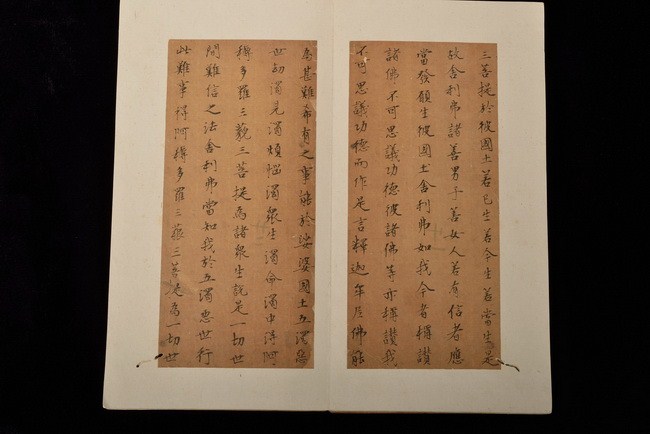 三菩提於彼國土若已生若今生若當生是
故舍利弗諸善男子善女人若有信者應
當發願生彼國土舍利弗如我今者稱讚
諸佛不可思議功德彼諸佛等亦稱讚我
不可思議功德而作是言釋迦牟尼佛能
為甚難希有之事能於娑婆國土五濁惡
世劫濁見濁煩惱濁眾生濁命濁中得阿
耨多羅三藐三菩提為諸眾生說是一切世
間難信之法舍利弗當知我於五濁惡世行
此難事得阿耨多羅三藐三菩提為一切世